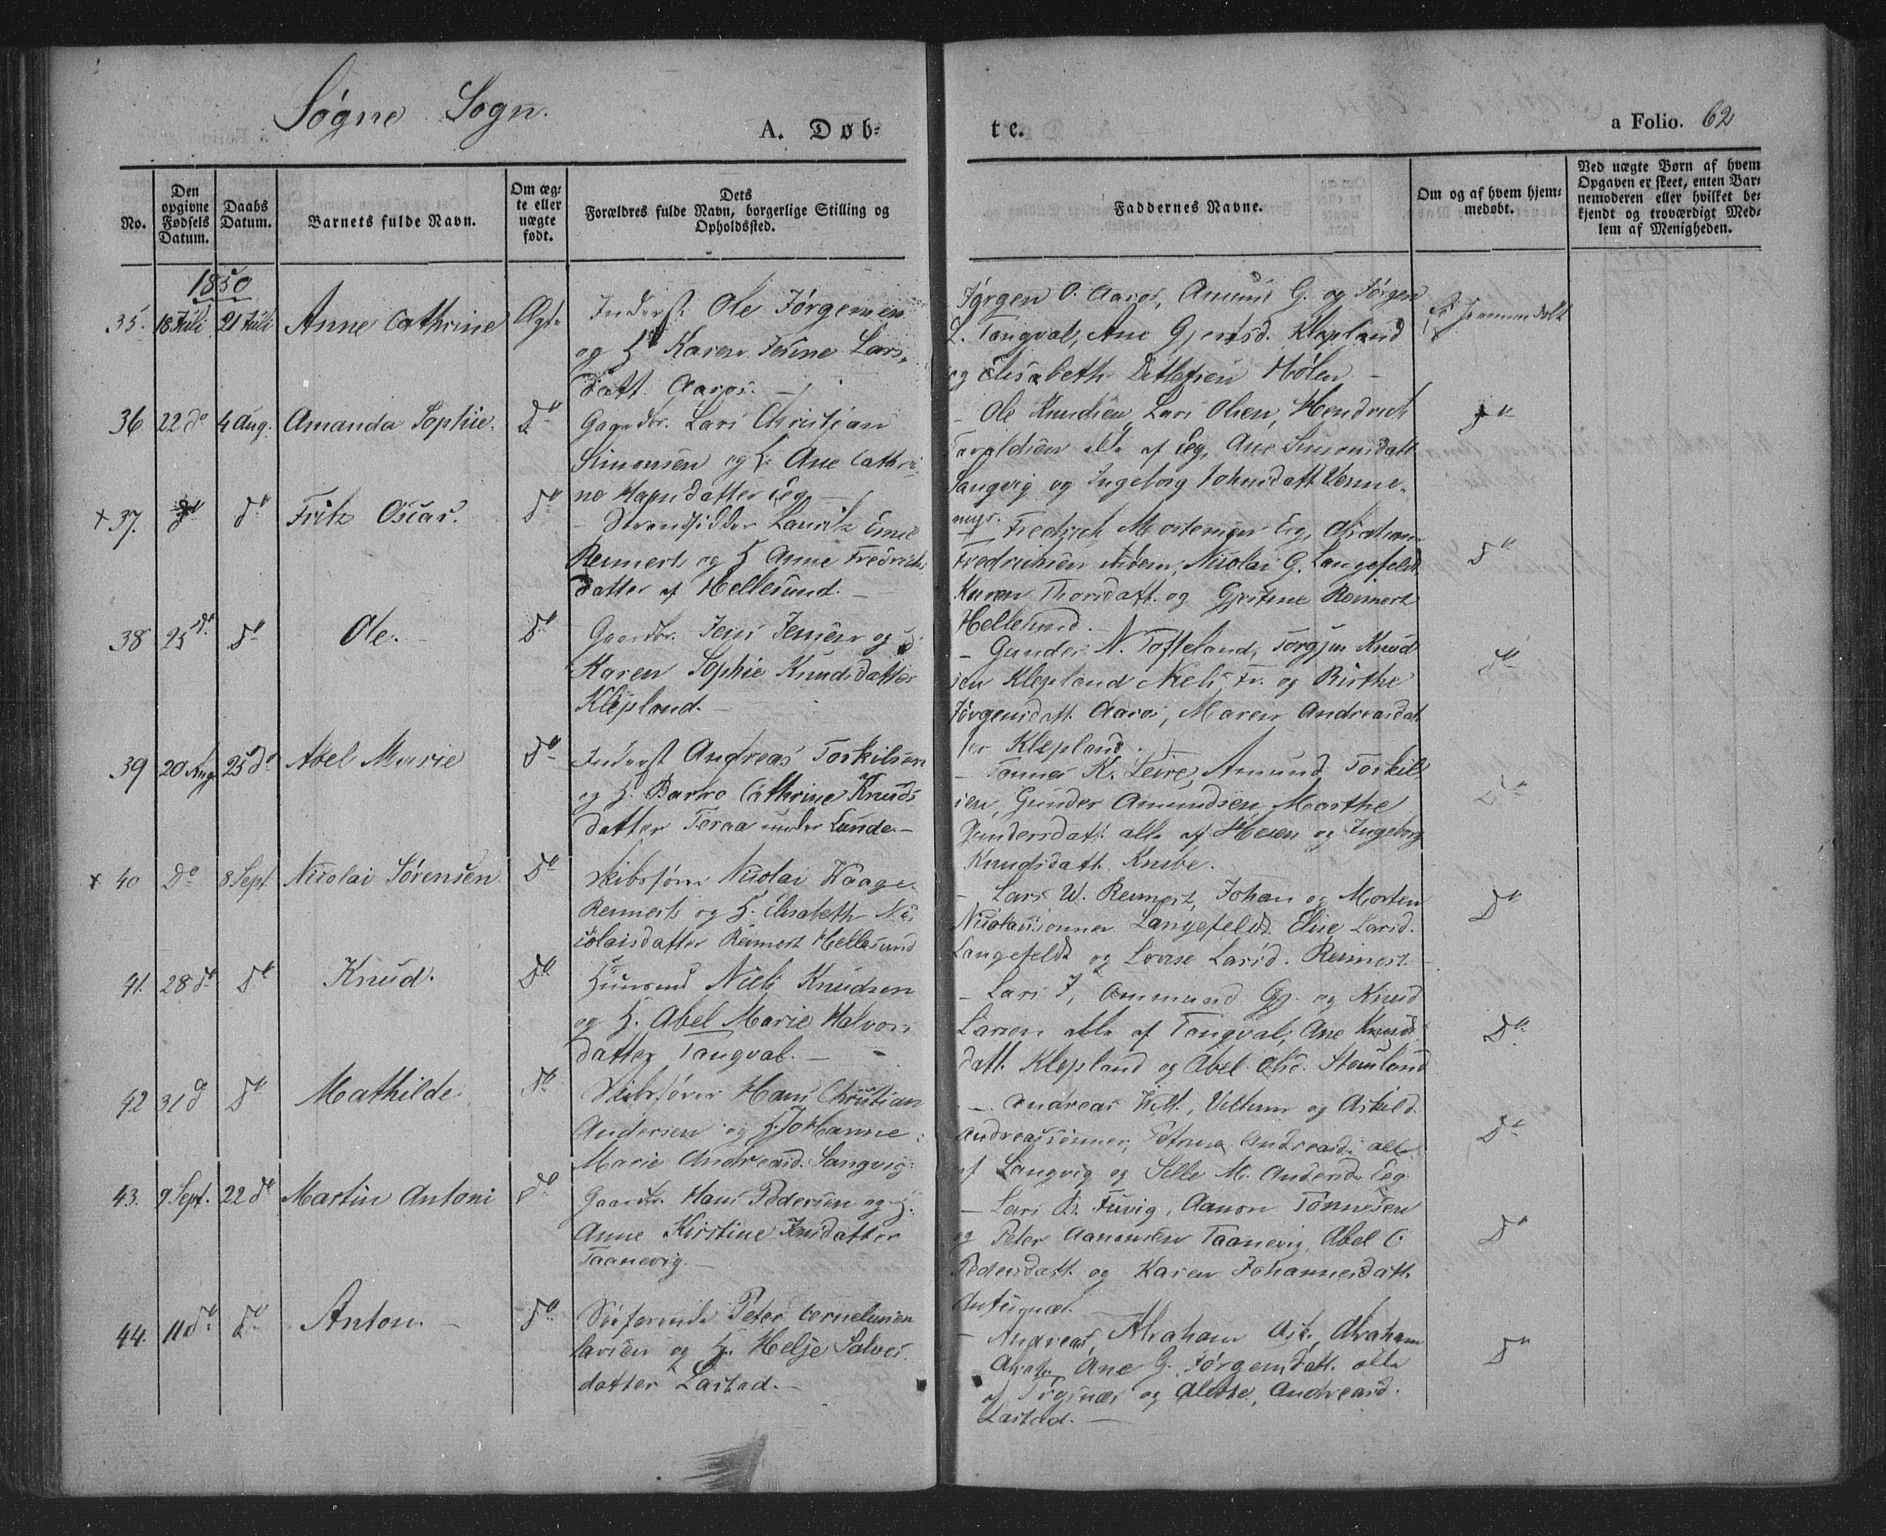 Søgne Sogn.
A. Døb-
te.
a Folio. 62
No.
Den opgivne Fødsels Datum.
Daabs Datum.
Barnets fulde Navn.
Om ægte eller uægte født.
Dets Forældres fulde Navn, borgerlige Stilling og Opholdssted.
Faddernes Navne.
Om og af hvem hjemmedøbt.
Ved uægte Børn af hvem Opgaven er skeet, enten Barnemoderen eller hvilket bekjendt og troværdigt Medlem af Menigheden.
1850
35. 18 Juli 21 Juli Anne Cathrine Ægte
Inderst Ole Jørgensen
og H. Karen Jensine Lars-
datt. Aaros. —
Jørgen O. Aaros, Amund G. og Jørgen
L. Tangval, Ane Gjertsd. Klepland
og Elisabeth Detlefsen Hølen —
36 22 do 4 Aug. Amanda Sophie. Do
Gaardbr. Lars Christian
Simonsen og H. Ane Cathri-
ne Hansdatter Eg —
— Ole Knudsen, Lars Olsen, Hendrich
Taraldsen alle af Eg, Ane Simonsdatt.
Langvig og Ingeborg Johnsdatt.
+ 37. do do Fritz Oscar. do
Strandsidder Lauritz Emil
Reimert og H. Anne Fredrichs-
datter af Hellesund. —
— Fredrich Mortensen Eg,
Fredrichsen, Nicolai G. Langefeldt,
Karen Thorsdatt. og Reimert
Hellesund.
38 25 do. do Ole. do
Gaardbr. Jens Jensen og H.
Karen Sophie Knudsdatter
Klepland. —
— Gunder N. Tofteland, Torgjus Knud-
sen Klepland Niels Fr. og Birthe
Jørgensdatt. Aaros, Maren Andreasdat-
ter Klepland.
39 20 Aug 25 do Abel Marie do
Inderst Andreas Torkilsen
og H. Barbro Cathrine Knuds-
datter Toraa under Lunde. —
— Tønnes K. Leire, Amund Torkil-
sen, Gunder Amundsen, Marthe
Gundersdatt. alle af og Ingeborg
Knudsdatt. Knibe.
+ 40 Do 8 Sept. Nicolai Sørensen do
Skibsfører Nicolai Waage
Reimert og H. Elisabeth Ni-
colaisdatter Reimert Hellesund
— Lars W. Reimert, Johan og Morten
Nicolaisønner Langefeldt, Elise Larsd.
Langefeldt og Lovise Larsd. Reimert. —
41. 28 do Do Knud. Do
Huusmd. Niels Knudsen
og H. Abel Marie Halvors-
datter Tangval. —
— Lars J., Ammund Gj. og Knud
Larsen alle af Tangval, Ane Knuds-
datt. Klepland og Abel Olsd.
Do
42 31 d Do Mathilde do
Skibsfører Hans Christian
Andersen og H. Johanne
Marie Andreasd. Langvig
— Andreas, Vilhem og Askild
Andreassønner, Andreasd. alle
af Langvig og M. Andersd. Eg
Do
43. 9 Sept. 22 do Martin Antoni do
Gaardbr. Hans Pedersen og H.
Anne Kirstine Jensdatter
Taanevig. —
— Lars B. Tuvig, Aanon Tønnesen
og Peter Aanonsen Taanevig, Abel C.
Pedersdatt. og Karen Johannesdatt.
Do
44. 11 do do Anton. — do
Søefarende Peter Cornelius
Larsen og H. Helje Salves-
datter Lastad. —
— Andreas, Abraham Ask., Abraham
Abrah., Ane G. Jørgensdatt. alle
af og Andreasd.
Lastad. —
Do